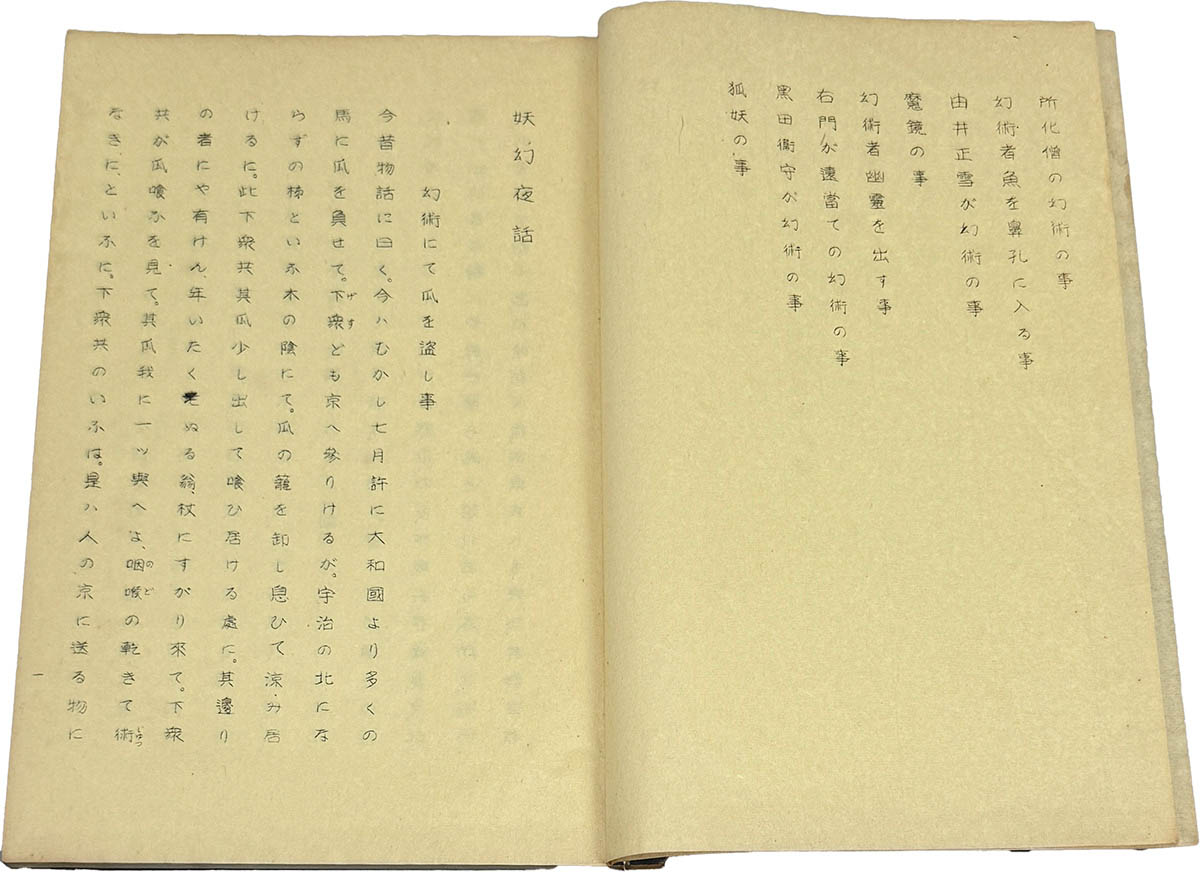 所化僧の幻術の事
幻術者魚を鼻孔に入る事
由井正雪が幻術の事
魔鏡の事
幻術者幽靈を出す事
右門が遠當ての幻術の事
黒田衞守が幻術の事
狐妖の事
妖幻夜話
幻術にて瓜を盜し事
今昔物話に曰く。今ハむかし七月許に大和國より多くの
馬に瓜を負せて。下衆げすども京へ參りけるが。宇治の北にな
らずの柹といふ木の陰にて。瓜の籠を卸し息ひて涼み居
けるに。此下衆共其瓜少し出して喰ひ居ける處に。其邊り
の者にや有けん、年いたく老ぬる翁、杖にすがり來て。下衆
共が瓜喰ふを見て。其瓜我に一ッ與へよ、咽喉のどの乾きて術じゅつ
なきに、といふに。下衆共のいふは。是ハ人の京に送る物に
一